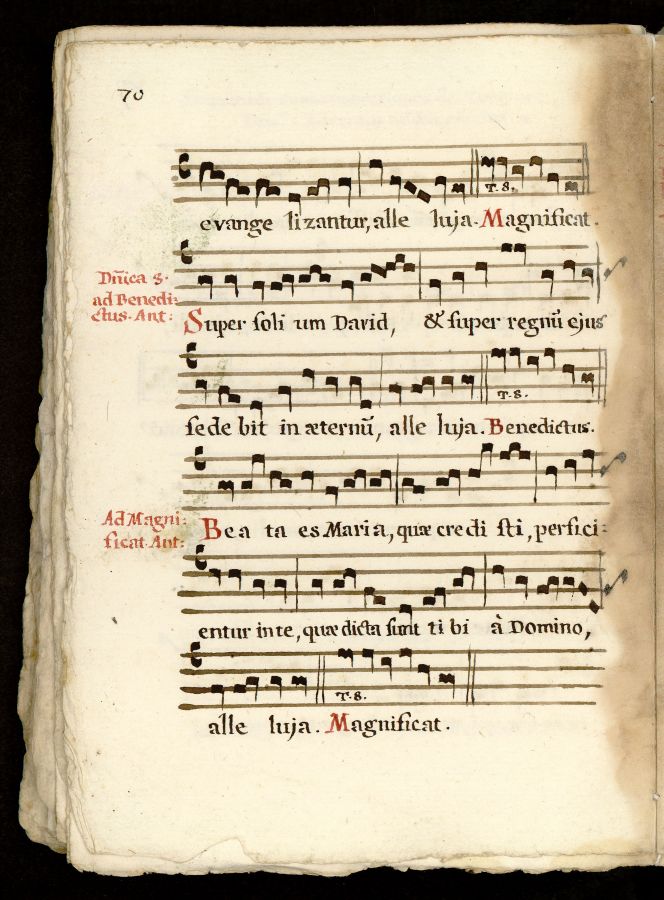 70
T. 8.
evange lizantur, alle luja. Magnificat.
Dñica 8.
ad Benedi:
ctus. Ant:
Super soli um David, & super regnũ ejus
T. 8.
sede bit in æternũ, alle luja. Benedictus.
Ad Magni:
ficat. Ant:
Bea ta es Maria, quæ credi sti, perfici:
entur in te, quæ dicta sunt ti bi à Domino,
T. 8.
alle luja. Magnificat.